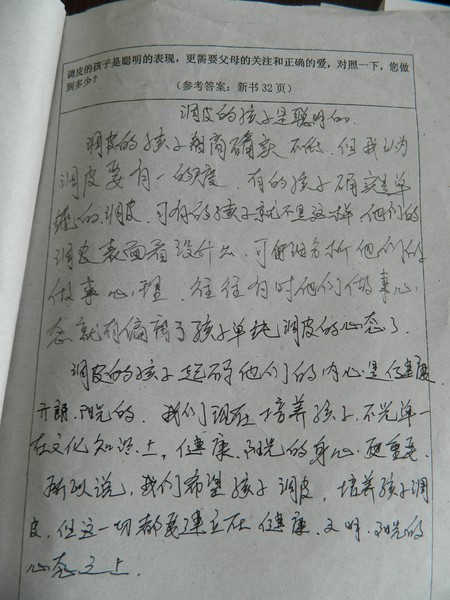 调皮的孩子是聪明的表现，更需要父母的关注和正确的爱，对照一下，您做
到多少？　　（参考答案：新书32页）
调皮的孩子是聪明的.
调皮的孩子智商确实不低.但我认为
调皮要有一的度.有的孩子确实是单
纯的调皮.可有的孩子就不是这样他们的
调皮表面看没什么.可仔细分析他们的
做事心理.往往有时他们做事心
态就有偏离了孩子单纯调皮的心态了.
调皮的孩子起码他们的内心是健康
开朗.阳光的.我们现在培养孩子.不光单一
在文化知识上，健康.阳光的身心.更重要.
所以说，我们希望孩子调皮，培养孩子调
皮.但这一切都要建立在健康.文明.阳光的
心态之上.